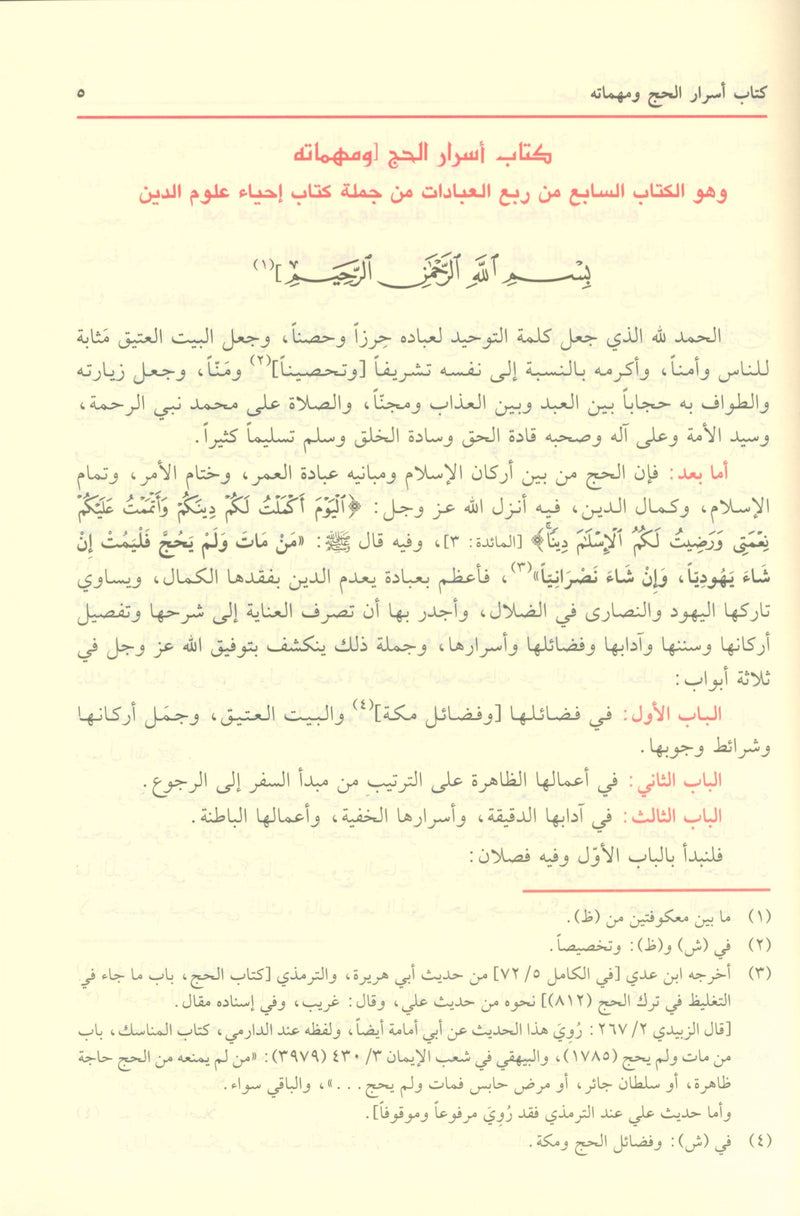 كتاب أسرار الحج ومهماته ٥
كتاب أسرار الحج [ومهماته
وهو الكتاب السابع من ربع العبادات من جملة كتاب إحياء علوم الدين
بِسْمِ ٱللَّهِ ٱلرَّحْمَٰنِ ٱلرَّحِيمِ](١)
الحمد لله الذي جعل كلمة التوحيد لعباده حِرزاً وحصناً، وجعل البيت العتيق مَثابة
للناس وأمناً، وأكرمه بالنسبة إلى نفسه تشريفاً [وتحصيناً](٢) ومَنّاً، وجعل زيارته
والطواف به حجاباً بين العبد وبين العذاب ومجنّاً، والصلاة على محمد نبي الرحمة،
وسيد الأمة وعلى آله وصحبه قادة الحق وسادة الخلق وسلم تسليماً كثيراً.
أما بعد: فإن الحج من بين أركان الإسلام ومبانيه عبادة العمر، وختام الأمر، وتمام
الإسلام، وكمال الدين، فيه أنزل الله عز وجل: ﴿ٱلْيَوْمَ أَكْمَلْتُ لَكُمْ دِينَكُمْ وَأَتْمَمْتُ عَلَيْكُمْ
نِعْمَتِي وَرَضِيتُ لَكُمُ ٱلْإِسْلَٰمَ دِينًا﴾ [المائدة: ٣]، وفيه قال ﷺ: «مَنْ مَاتَ وَلَمْ يَحُجَّ فَلْيَمُتْ إِنْ
شَاءَ يَهُودِيَاً، وَإِنْ شَاءَ نَصْرَانِيَاً»(٣)، فأعظم بعبادة يعدم الدين بفقدها الكمال، ويساوي
تاركها اليهود والنصارى في الضلال، وأجدر بها أن تصرف العناية إلى شرحها وتفصيل
أركانها وسننها وآدابها وفضائلها وأسرارها، وجملة ذلك ينكشف بتوفيق الله عز وجل في
ثلاثة أبواب:
الباب الأول: في فضائلها [وفضائل مكة](٤) والبيت العتيق، وجمَل أركانها
وشرائط وجوبها.
الباب الثاني: في أعمالها الظاهرة على الترتيب من مبدأ السفر إلى الرجوع.
الباب الثالث: في آدابها الدقيقة، وأسرارها الخفية، وأعمالها الباطنة.
فلنبدأ بالباب الأوّل وفيه فصلان:
(١) ما بين معكوفتين من (ظ).
(٢) في (ش) و(ظ): وتخصيصاً.
(٣) أخرجه ابن عدي [في الكامل ٥/ ٧٢] من حديث أبي هريرة، والترمذي [كتاب الحج، باب ما جاء في
التغليظ في ترك الحج (٨١٢)] نحوه من حديث علي، وقال: غريب، وفي إسناده مقال.
[قال الزبيدي ٢/ ٢٦٧: رُوِيَ هذا الحديث عن أبي أمامة أيضاً، ولفظه عند الدارمي، كتاب المناسك، باب
من مات ولم يحج (١٧٨٥)، والبيهقي في شعب الإيمان ٣/ ٤٣٠ (٣٩٧٩): «من لم يمنعه من الحج حاجة
ظاهرة، أو سلطان جائر، أو مرض حابس فمات ولم يحج...»، والباقي سواء.
وأما حديث علي عند الترمذي فقد رُوِيَ مرفوعاً وموقوفاً].
(٤) في (ش): وفضائل الحج ومكة.